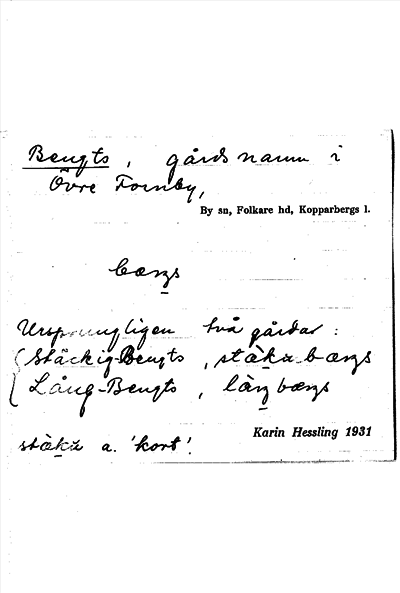 Bengts, gårdsnamn i
Övre Fornby,
By sn, Folkare hd, Kopparbergs l.
bæŋs
Ursprungligen två gårdar:
{ Stäckig-Bengts, stàka bæŋs
{ Lång-Bengts, làŋ bæŋs
Karin Hessling 1931
stàka a. 'kort'.